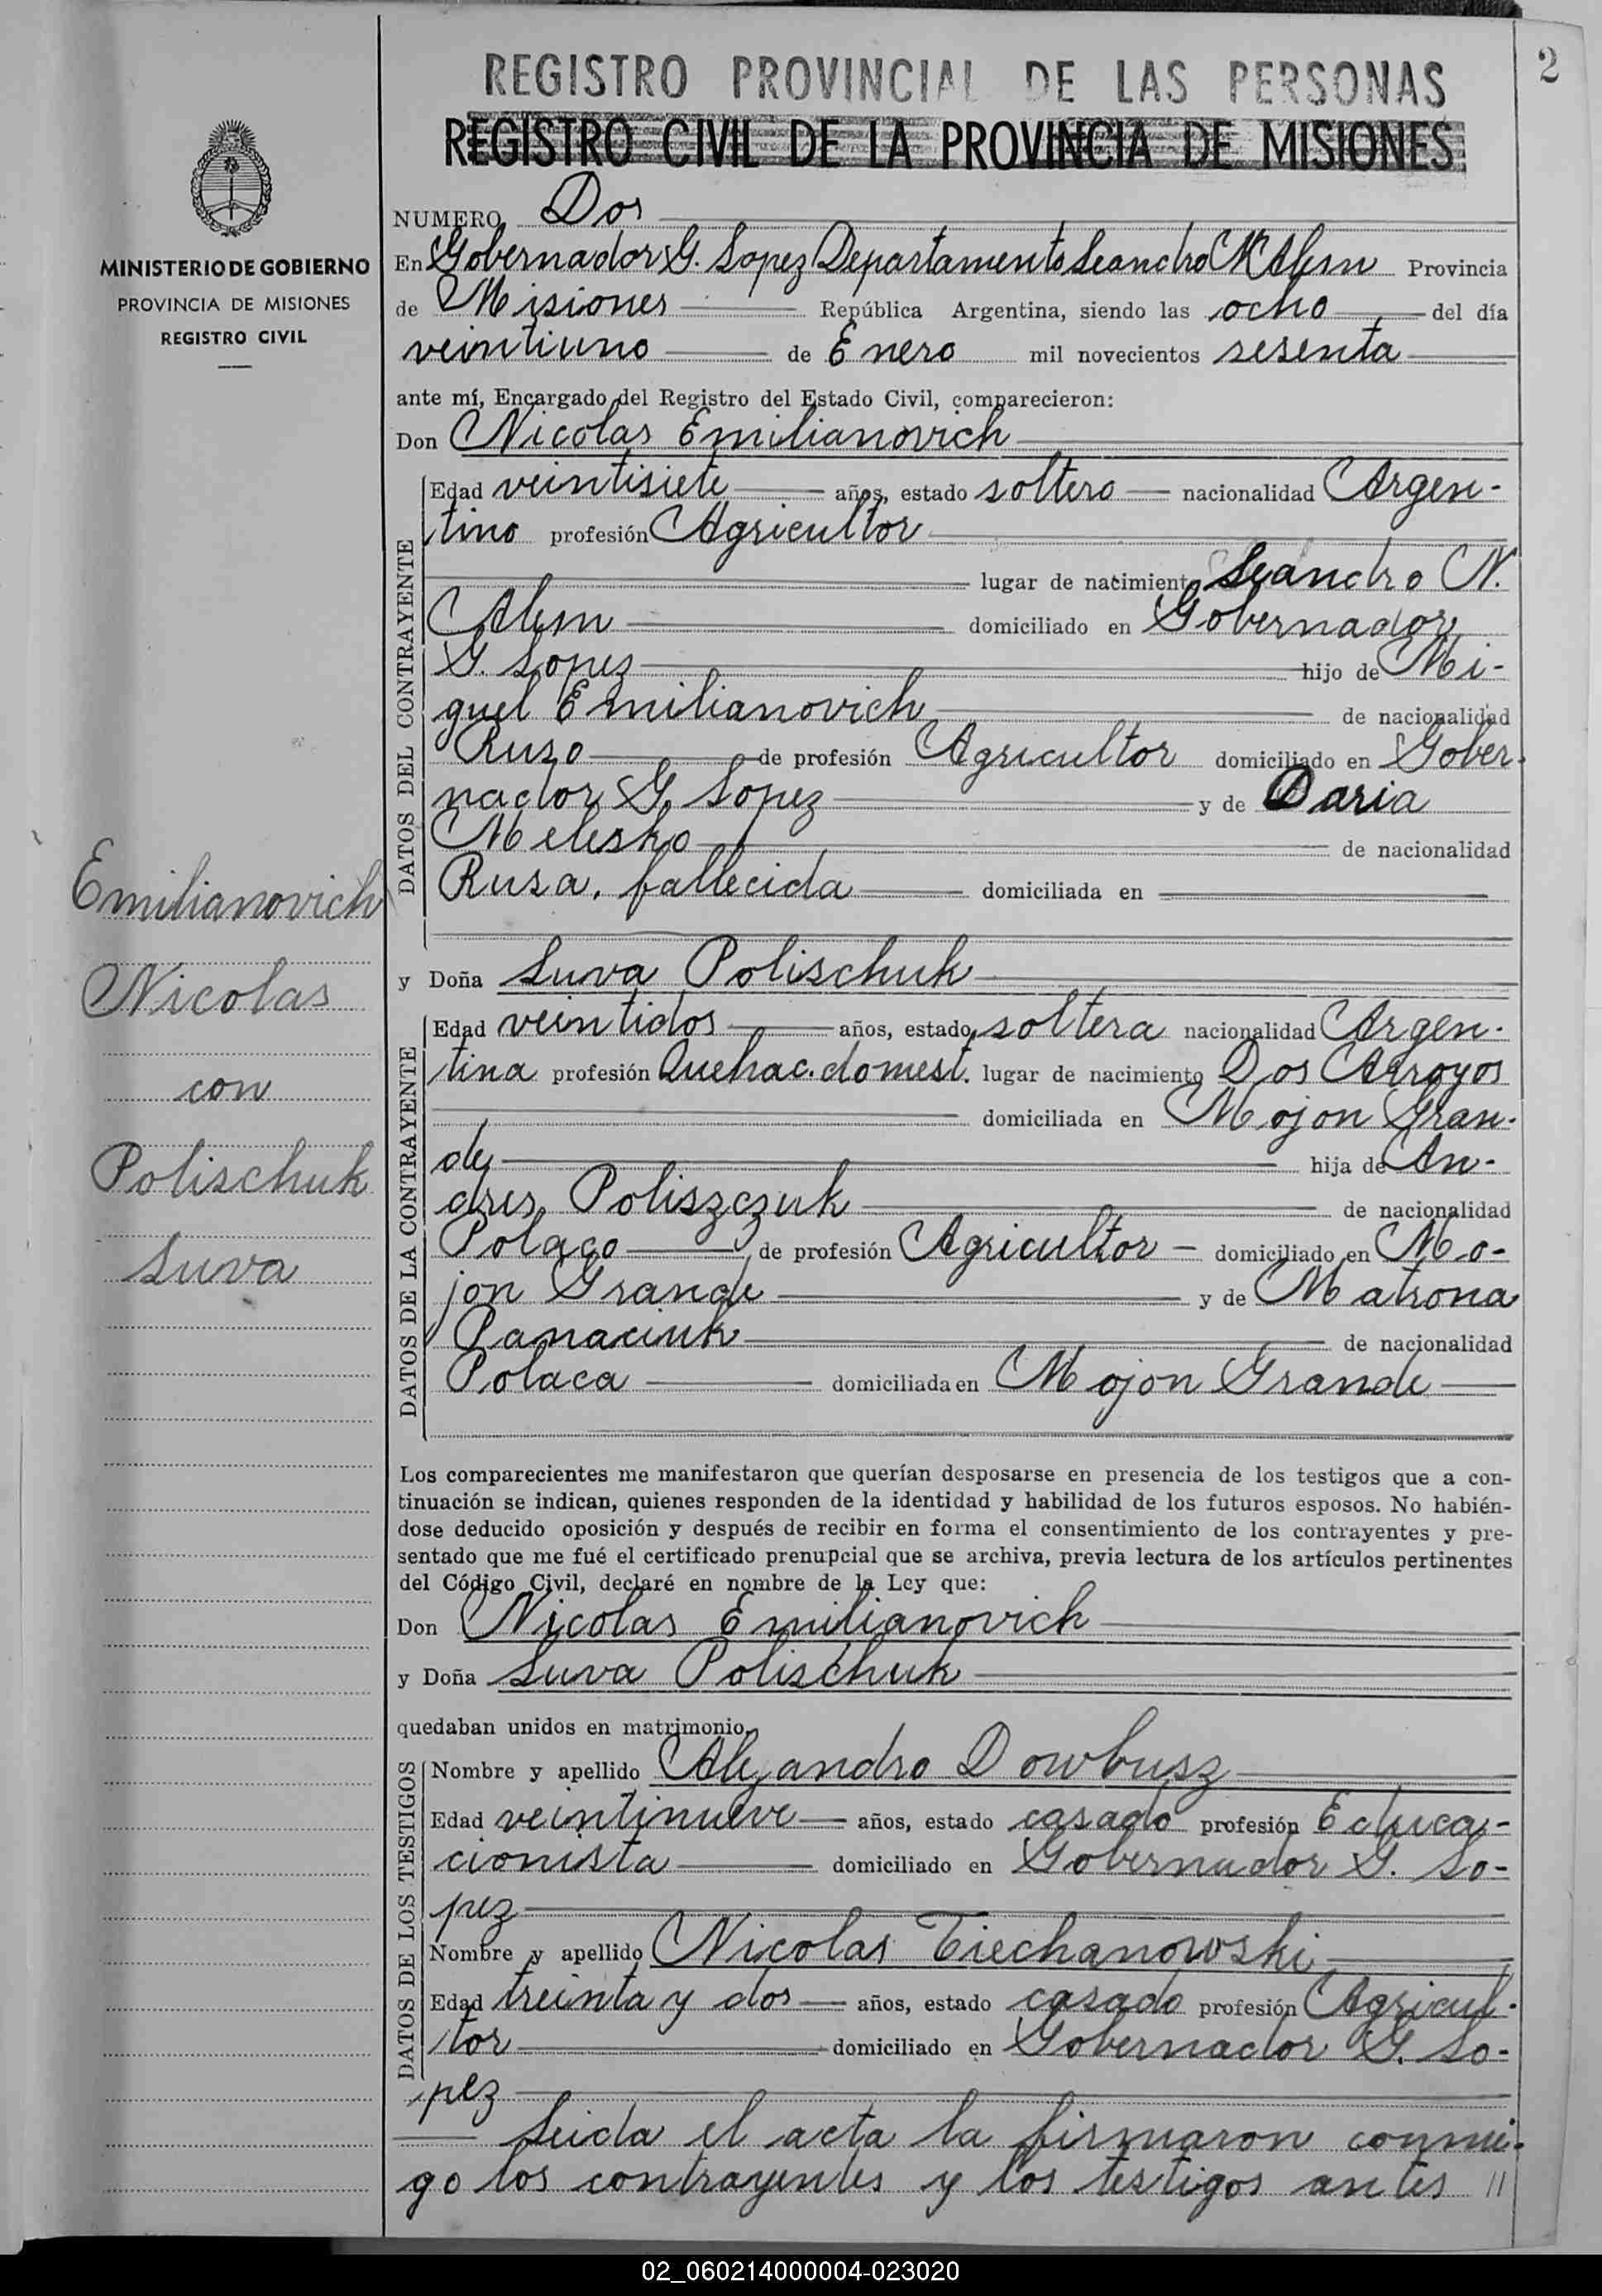 2
REGISTRO PROVINCIAL DE LAS PERSONAS
REGISTRO CIVIL DE LA PROVINCIA DE MISIONES
MINISTERIO DE GOBIERNO
PROVINCIA DE MISIONES
REGISTRO CIVIL
Emilianovich
Nicolas
con
Polischuk
Luva
NUMERO Dos
En Gobernador G. Lopez Departamento Leandro N. Alem Provincia
de Misiones República Argentina, siendo las ocho del día
veintiuno de Enero mil novecientos sesenta
ante mí, Encargado del Registro del Estado Civil, comparecieron:
Don Nicolas Emilianovich
DATOS DEL CONTRAYENTE
Edad veintisiete años, estado soltero nacionalidad Argen-
tino profesión Agricultor
lugar de nacimiento Leandro N.
Alem domiciliado en Gobernador
G. Lopez hijo de Mi-
guel Emilianovich de nacionalidad
Ruso de profesión Agricultor domiciliado en Gober-
nador G. Lopez y de Daria
Melesko de nacionalidad
Rusa, fallecida domiciliada en
y Doña Luva Polischuk
DATOS DE LA CONTRAYENTE
Edad veintidos años, estado soltera nacionalidad Argen-
tina profesión Quehac. domest. lugar de nacimiento Dos Arroyos
domiciliada en Mojon Gran-
de hija de An-
dres Poliszczuk de nacionalidad
Polaco de profesión Agricultor - domiciliado en Mo-
jon Grande y de Matrona
Panaciuk de nacionalidad
Polaca domiciliada en Mojon Grande
Los comparecientes me manifestaron que querían desposarse en presencia de los testigos que a con-
tinuación se indican, quienes responden de la identidad y habilidad de los futuros esposos. No habién-
dose deducido oposición y después de recibir en forma el consentimiento de los contrayentes y pre-
sentado que me fué el certificado prenupcial que se archiva, previa lectura de los artículos pertinentes
del Código Civil, declaré en nombre de la Ley que:
Don Nicolas Emilianovich
y Doña Luva Polischuk
quedaban unidos en matrimonio.
DATOS DE LOS TESTIGOS
Nombre y apellido Alejandro Dowbusz
Edad veintinueve años, estado casado profesión Educa-
cionista domiciliado en Gobernador G. Lo-
pez
Nombre y apellido Nicolas Tiechanowski
Edad treinta y dos años, estado casado profesión Agricul-
tor domiciliado en Gobernador G. Lo-
pez
Leida el acta la firmaron conmi-
go los contrayentes y los testigos antes //
02_060214000004-023020